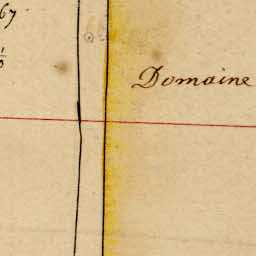 67
Domaine